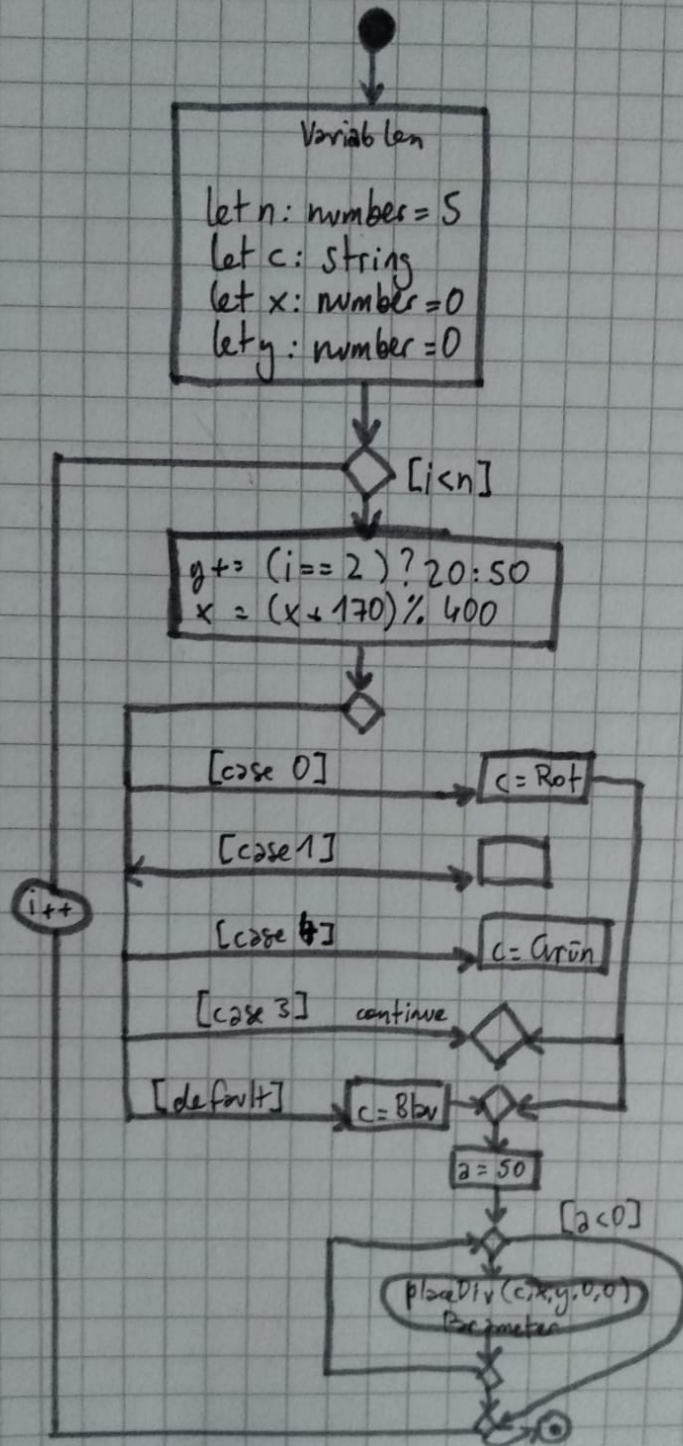 Variablen
let n: number = 5
let c: string
let x: number = 0
let y: number = 0
[i<n]
y += (i == 2) ? 20 : 50
x = (x + 170) % 400
[case 0]
c = Rot
[case 1]
i++
[case 4]
c = Grün
[case 3] continue
[default]
c = Blau
a = 50
[a<0]
placeDiv(c,x,y,0,0)